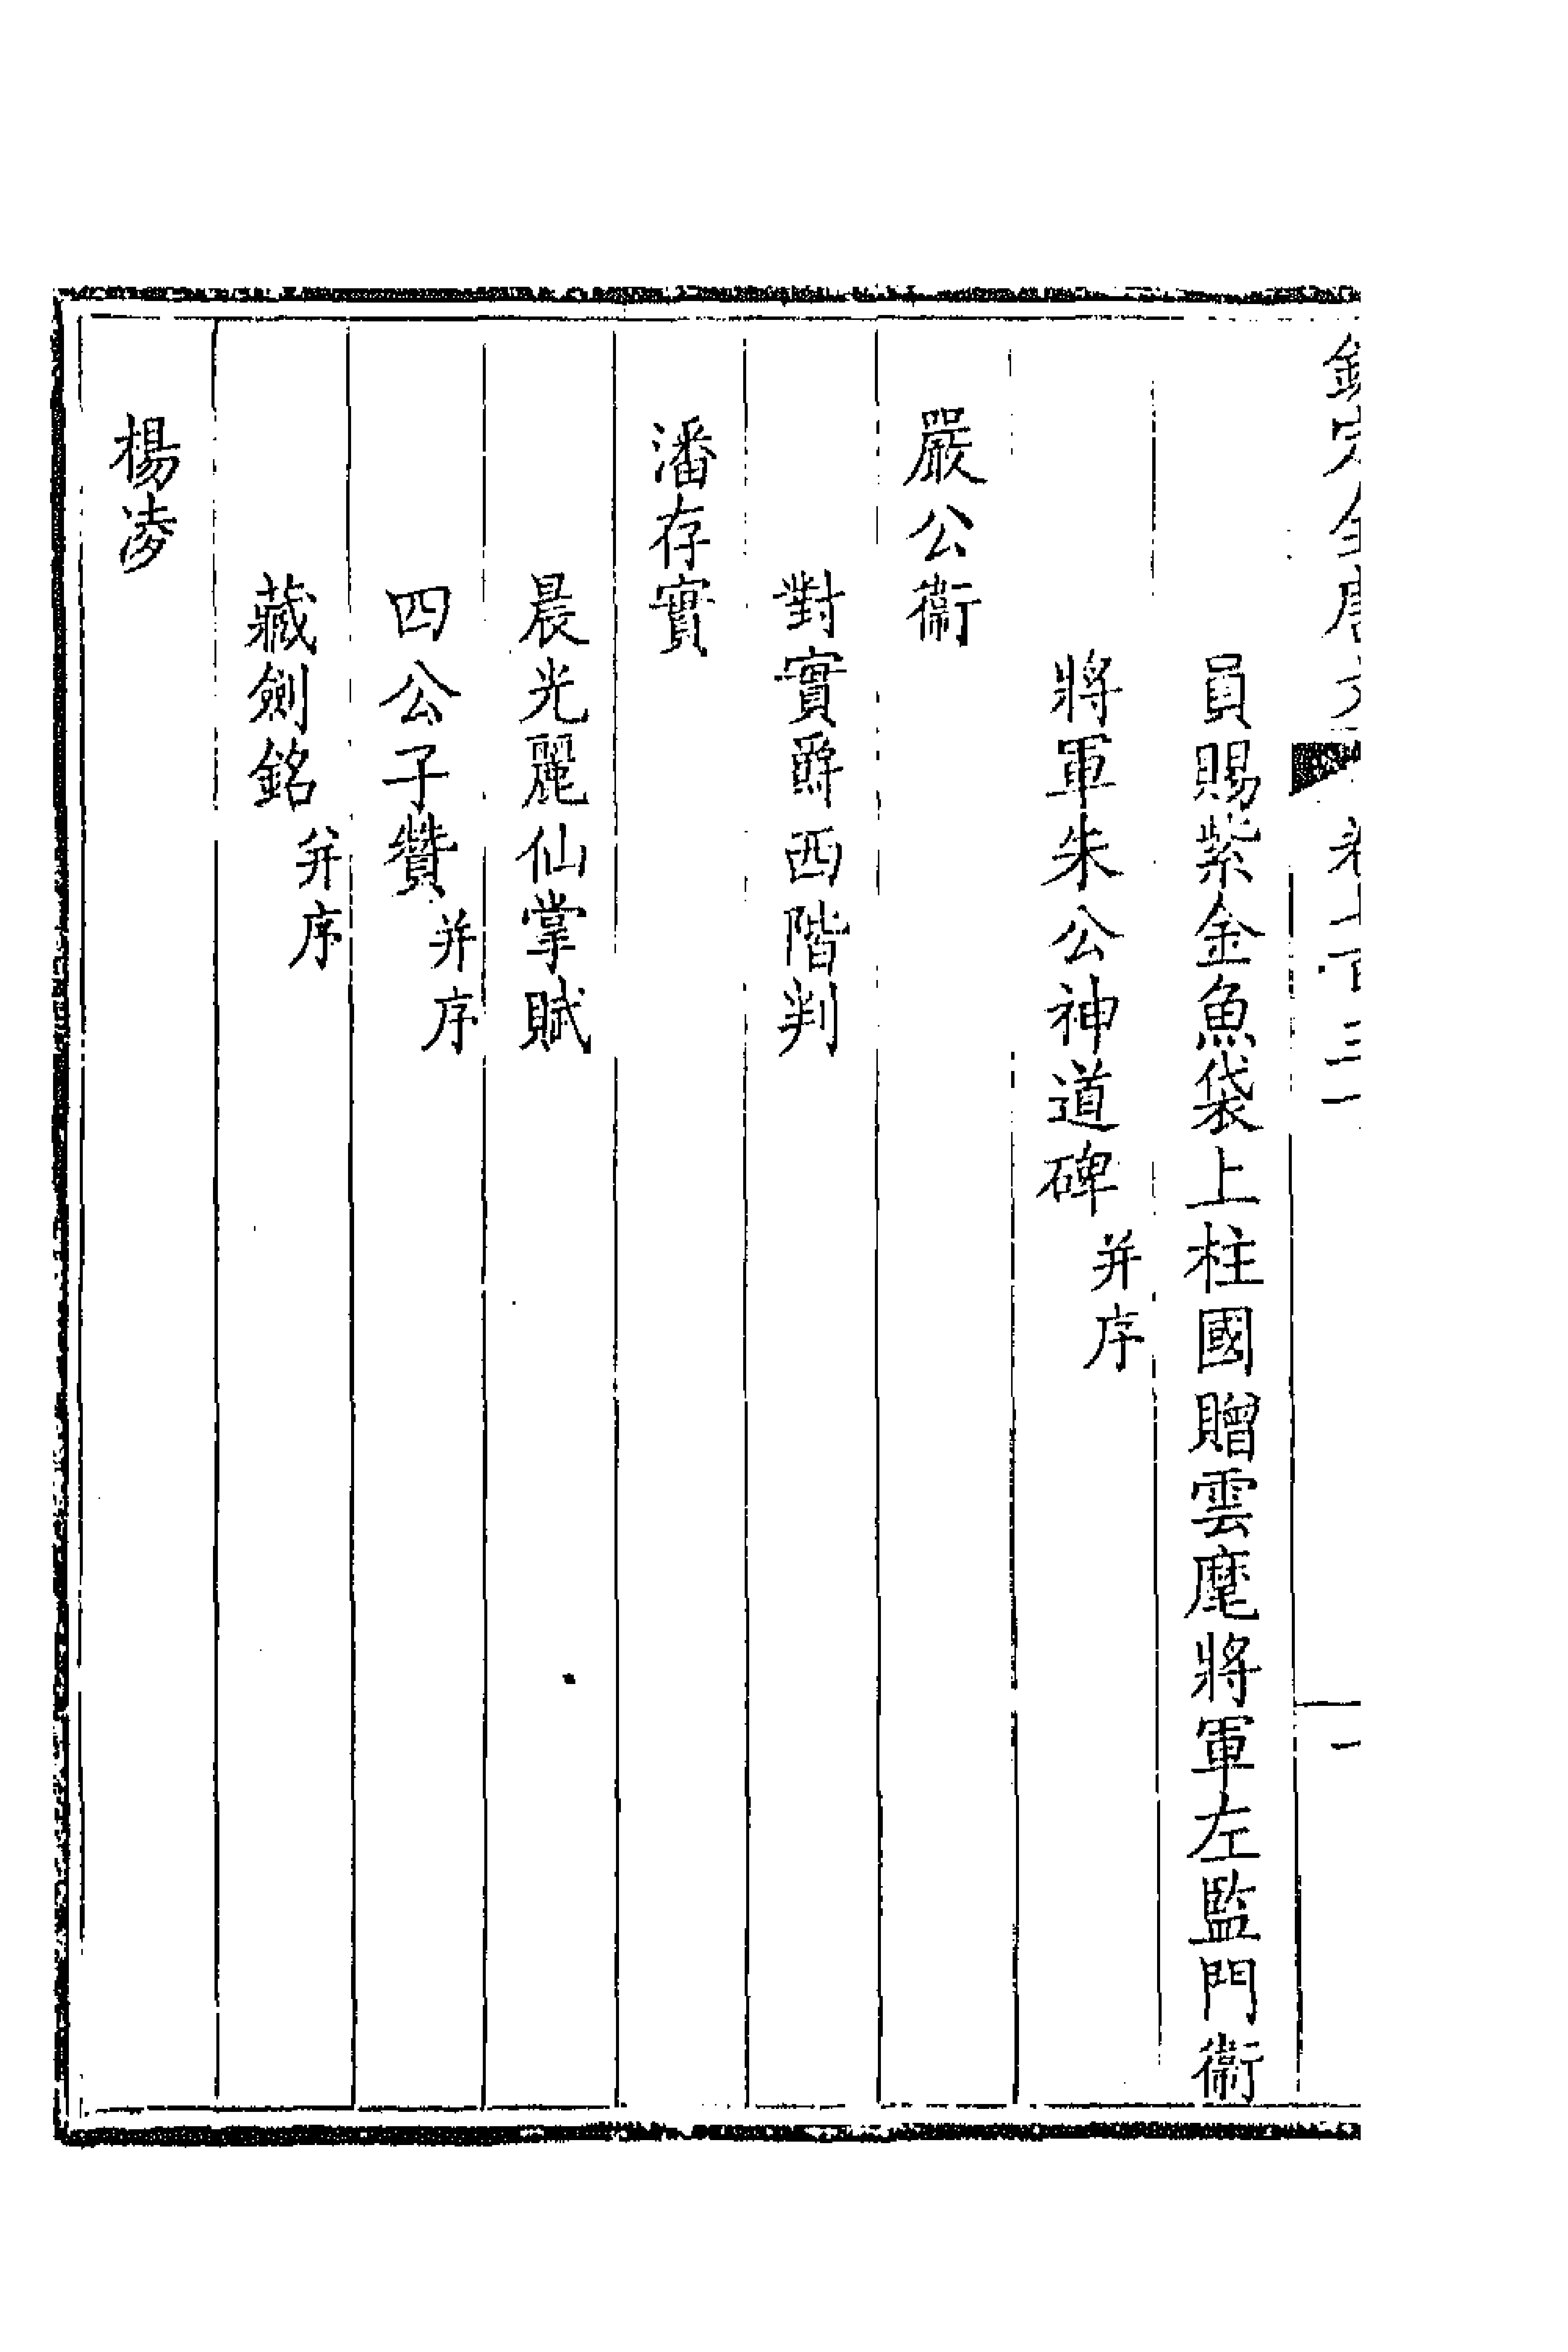 欽定全唐文
員賜紫金魚袋上柱國贈雲麾將軍左監門衞
將軍朱公神道碑并序
嚴公衞
對實爵西階判
潘存實
晨光麗仙掌賦
四公子贊并序
藏劍銘并序
楊凌